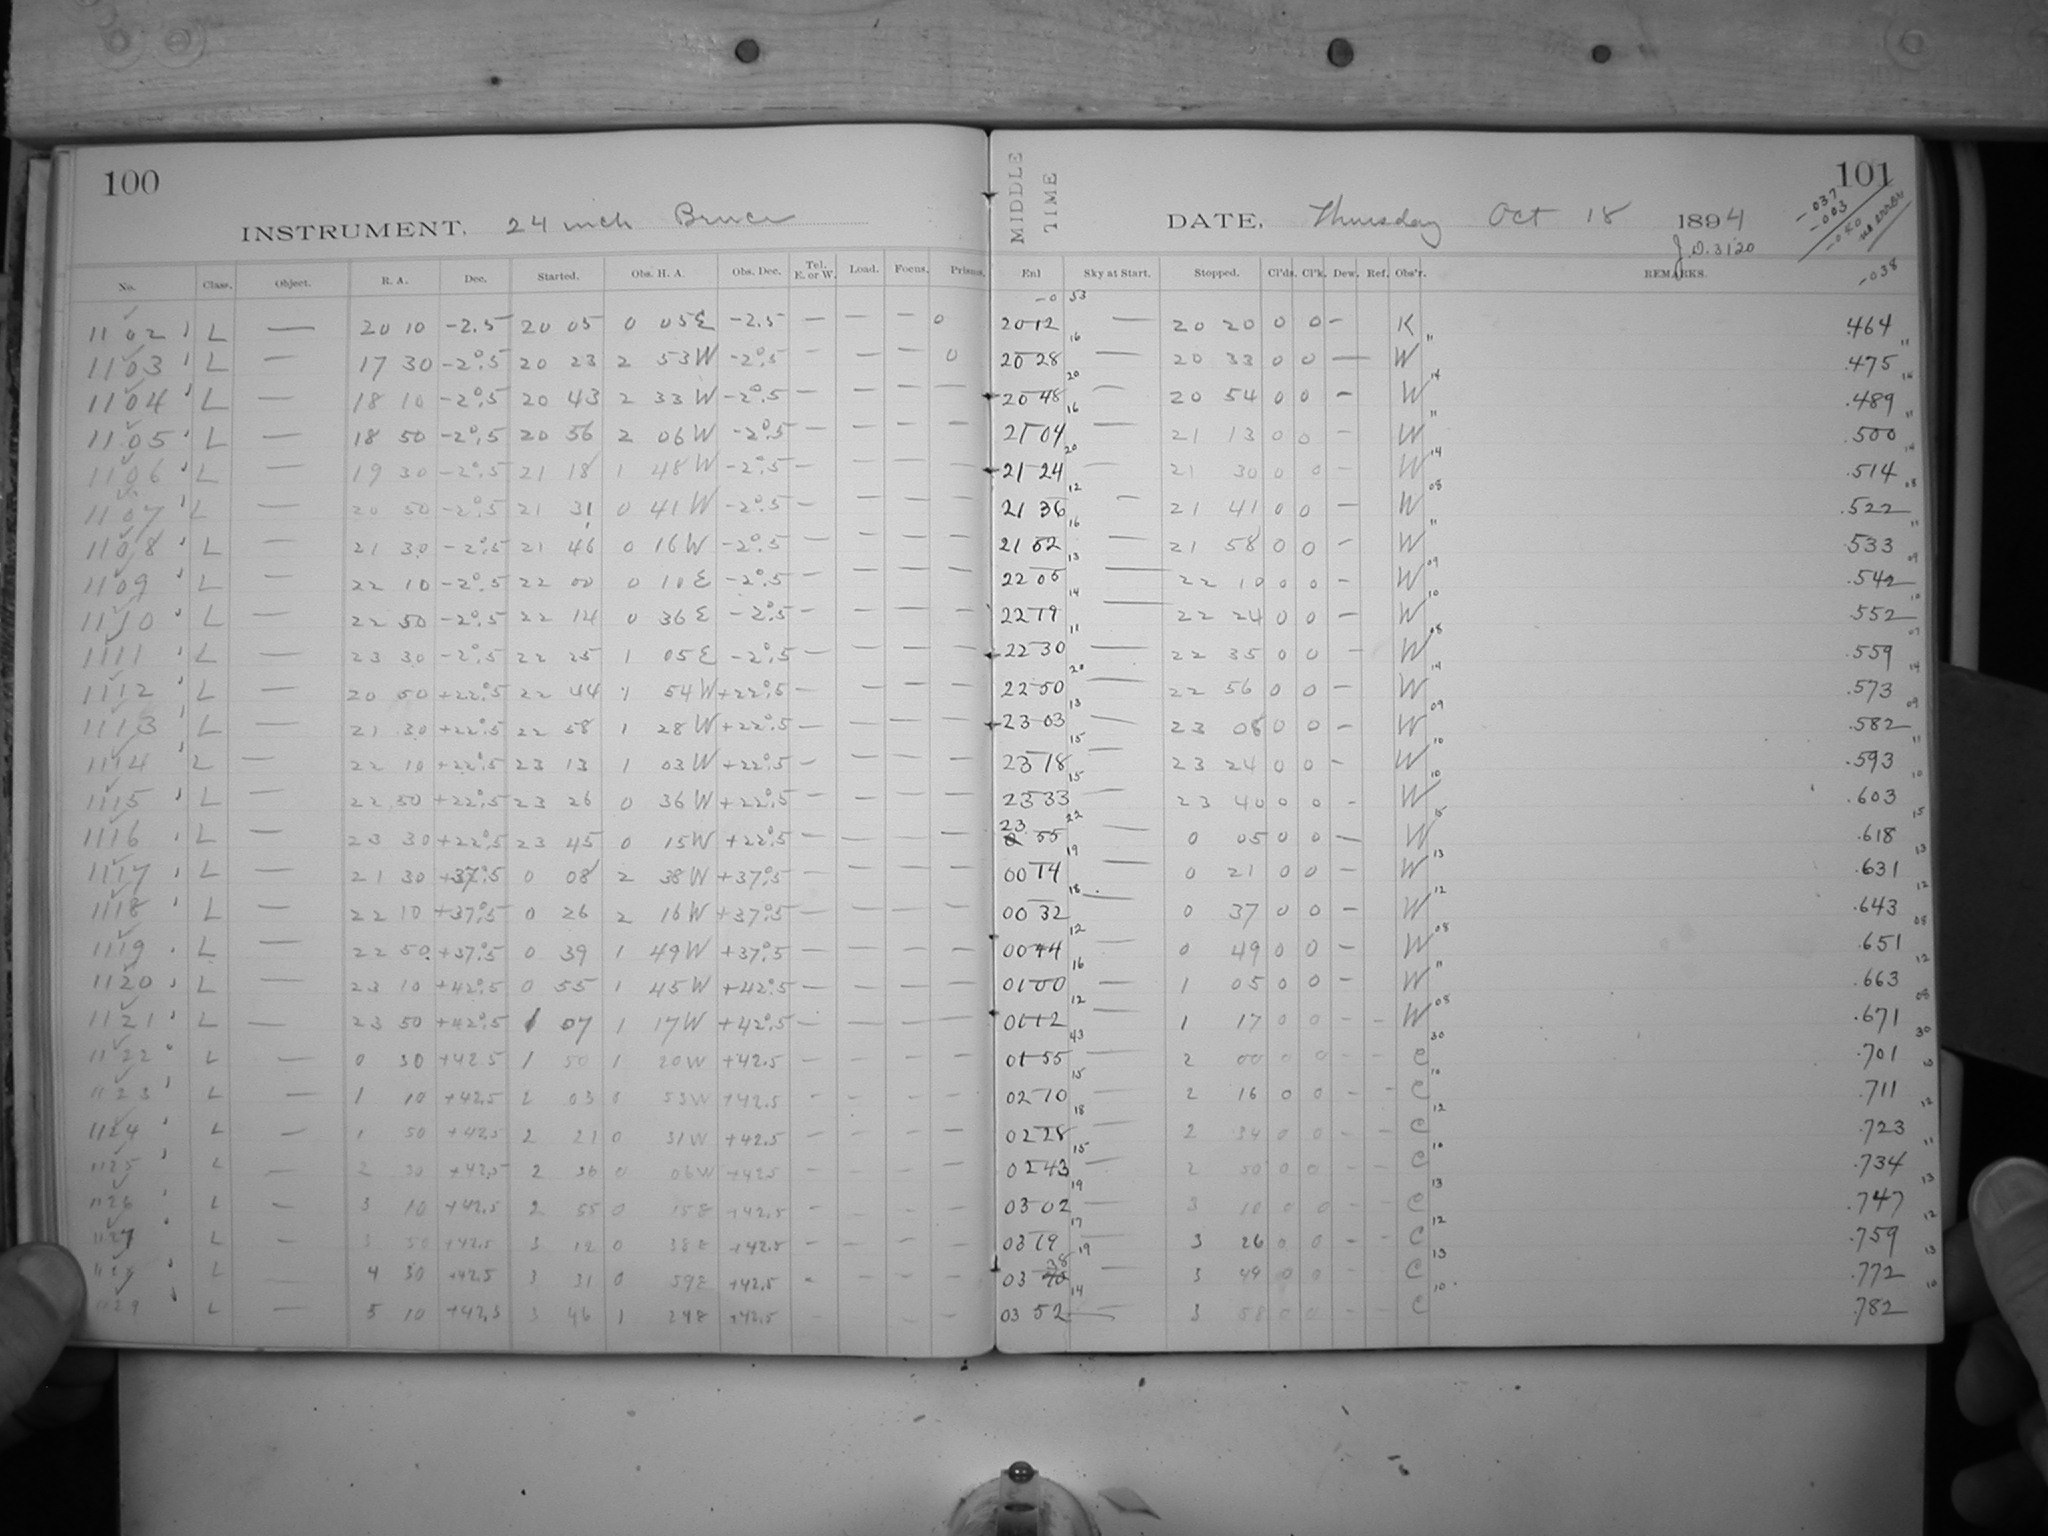 100
101
MIDDLE TIME
-037
-003
-040
INSTRUMENT. 24 inch Bruce
DATE. Thursday Oct 18 1894
J.D. 3120
No. Class. Object. R. A. Dec. Started. Obs. H. A. Obs. Dec. Tel. E. or W. Load. Focus. Prisms. Enl Sky at Start. Stopped. Cl'ds. Cl'k. Dew. Ref. Obs'r. REMARKS. -038
-0 53
1102 L — 20 10 -2.5 20 05 0 05 E -2.5 — — — 0 20 12 — 20 20 0 0 — K 464
1103 L — 17 30 -2°.5 20 23 2 53 W -2°.5 — — — 0 20 28 16 — 20 33 0 0 — W 11 .475 11
1104 L — 18 10 -2°.5 20 43 2 33 W -2°.5 — — — — 20 48 20 — 20 54 0 0 — W 14 .489 14
1105 L — 18 50 -2°.5 20 56 2 06 W -2°.5 — — — — 21 04 16 — 21 13 0 0 — W 11 .500 11
1106 L — 19 30 -2°.5 21 18 1 48 W -2°.5 — — — — 21 24 20 — 21 30 0 0 — W 14 .514 14
1107 L — 20 50 -2°.5 21 31 0 41 W -2°.5 — — — — 21 36 12 — 21 41 0 0 — W 08 .522 08
1108 L — 21 30 -2°.5 21 46 0 16 W -2°.5 — — — — 21 52 16 — 21 58 0 0 — W 11 .533 11
1109 L — 22 10 -2°.5 22 00 0 10 E -2°.5 — — — — 22 05 13 — 22 10 0 0 — W 09 .542 09
1110 L — 22 50 -2°.5 22 14 0 36 E -2°.5 — — — — 22 19 14 — 22 24 0 0 — W 10 .552 10
1111 L — 23 30 -2°.5 22 25 1 05 E -2°.5 — — — — 22 30 11 — 22 35 0 0 — W 08 .559 07
1112 L — 20 50 +22°.5 22 44 1 54 W +22°.5 — — — — 22 50 20 — 22 56 0 0 — W 14 .573 14
1113 L — 21 30 +22°.5 22 58 1 28 W +22°.5 — — — — 23 03 13 — 23 08 0 0 — W 09 .582 09
1114 L — 22 10 +22°.5 23 13 1 03 W +22°.5 — — — — 23 18 15 — 23 24 0 0 — W 10 .593 11
1115 L — 22 50 +22°.5 23 26 0 36 W +22°.5 — — — — 23 33 15 — 23 40 0 0 — W 10 .603 10
1116 L — 23 30 +22°.5 23 45 0 15 W +22°.5 — — — — 23 55 22 — 0 05 0 0 — W 15 .618 15
1117 L — 21 30 +37°.5 0 08 2 38 W +37°.5 — — — — 00 14 19 — 0 21 0 0 — W 13 .631 13
1118 L — 22 10 +37°.5 0 26 2 16 W +37°.5 — — — — 00 32 18 — 0 37 0 0 — W 12 .643 12
1119 L — 22 50 +37°.5 0 39 1 49 W +37°.5 — — — — 00 44 12 — 0 49 0 0 — W 08 .651 08
1120 L — 23 10 +42°.5 0 55 1 45 W +42°.5 — — — — 01 00 16 — 1 05 0 0 — W 11 .663 12
1121 L — 23 50 +42°.5 1 07 1 17 W +42°.5 — — — — 01 12 12 — 1 17 0 0 — — W 08 .671 08
1122 L — 0 30 +42.5 1 50 1 20 W +42.5 — — — — 01 55 43 — 2 00 0 0 — — C 30 .701 30
1123 L — 1 10 +42.5 2 03 0 53 W +42.5 — — — — 02 10 15 — 2 16 0 0 — — C 10 .711 10
1124 L — 1 50 +42.5 2 21 0 31 W +42.5 — — — — 02 28 18 — 2 34 0 0 — — C 12 .723 12
1125 L — 2 30 +42.5 2 36 0 06 W +42.5 — — — — 02 43 15 — 2 50 0 0 — — C 10 .734 11
1126 L — 3 10 +42.5 2 55 0 15 E +42.5 — — — — 03 02 19 — 3 10 0 0 — — C 13 .747 13
1127 L — 3 50 +42.5 3 12 0 38 E +42.5 — — — — 03 19 17 — 3 26 0 0 — — C 12 .759 12
1128 L — 4 30 +42.5 3 31 0 59 E +42.5 — — — — 03 38 19 — 3 49 0 0 — — C 13 .772 13
1129 L — 5 10 +42.5 3 46 1 24 E +42.5 — — — 03 52 14 — 3 58 0 0 — — C 10 .782 10